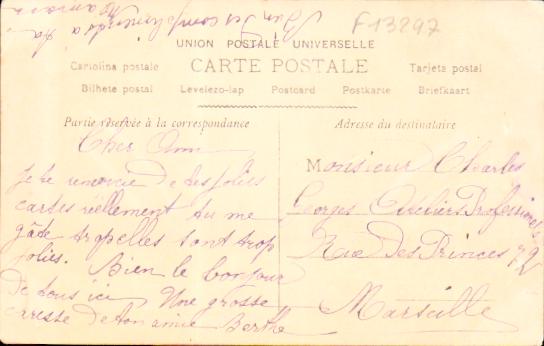 Bien des compliments à ta
Maman
F13297
UNION POSTALE UNIVERSELLE
CARTE POSTALE
Cartolina postale
Tarjeta postal
Bilhete postal Levelezo-lap Postcard Postkarte Briefkaart
Partie réservée à la correspondance
Cher Ami
Je te remercie de tes jolies
cartes réellement tu me
gâte trop elles sont trop
jolies. Bien le bonjour
de tous ici Une grosse
caresse de ton amie Berthe
Adresse du destinataire
Monsieur Charles
Georges Ateliers Professionels
Rue Des Princes 72
Marseille